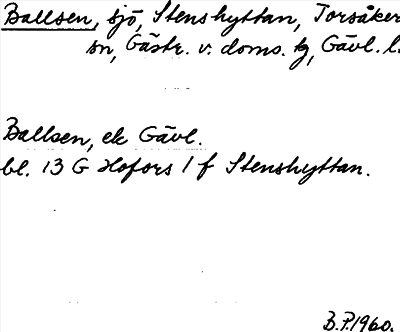 Ballsen, sjö, Stenshyttan, Torsåker
sn, Gästr. v. doms. tg, Gävl. l.
Ballsen, ek Gävl.
bl. 13 G Hofors 1 f Stenshyttan.
B.P. 1960.